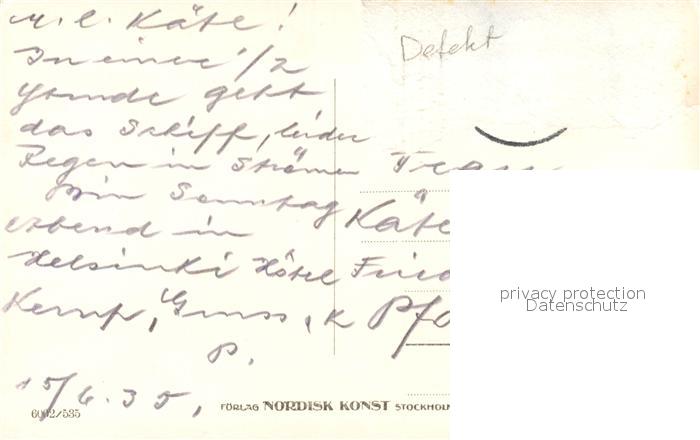 M. l. Käte!
In einer 1/2
Stunde geht
das Schiff, leider
Regen in Strömen
Bin Sonntag
abend in
Helsinki Hotel
Kemp, Gruss, K
P.
15/6.35,
Defekt
Frau
Käte
Fried
Pfo
privacy protection
Datenschutz
6002/535
FÖRLAG NORDISK KONST STOCKHOLM